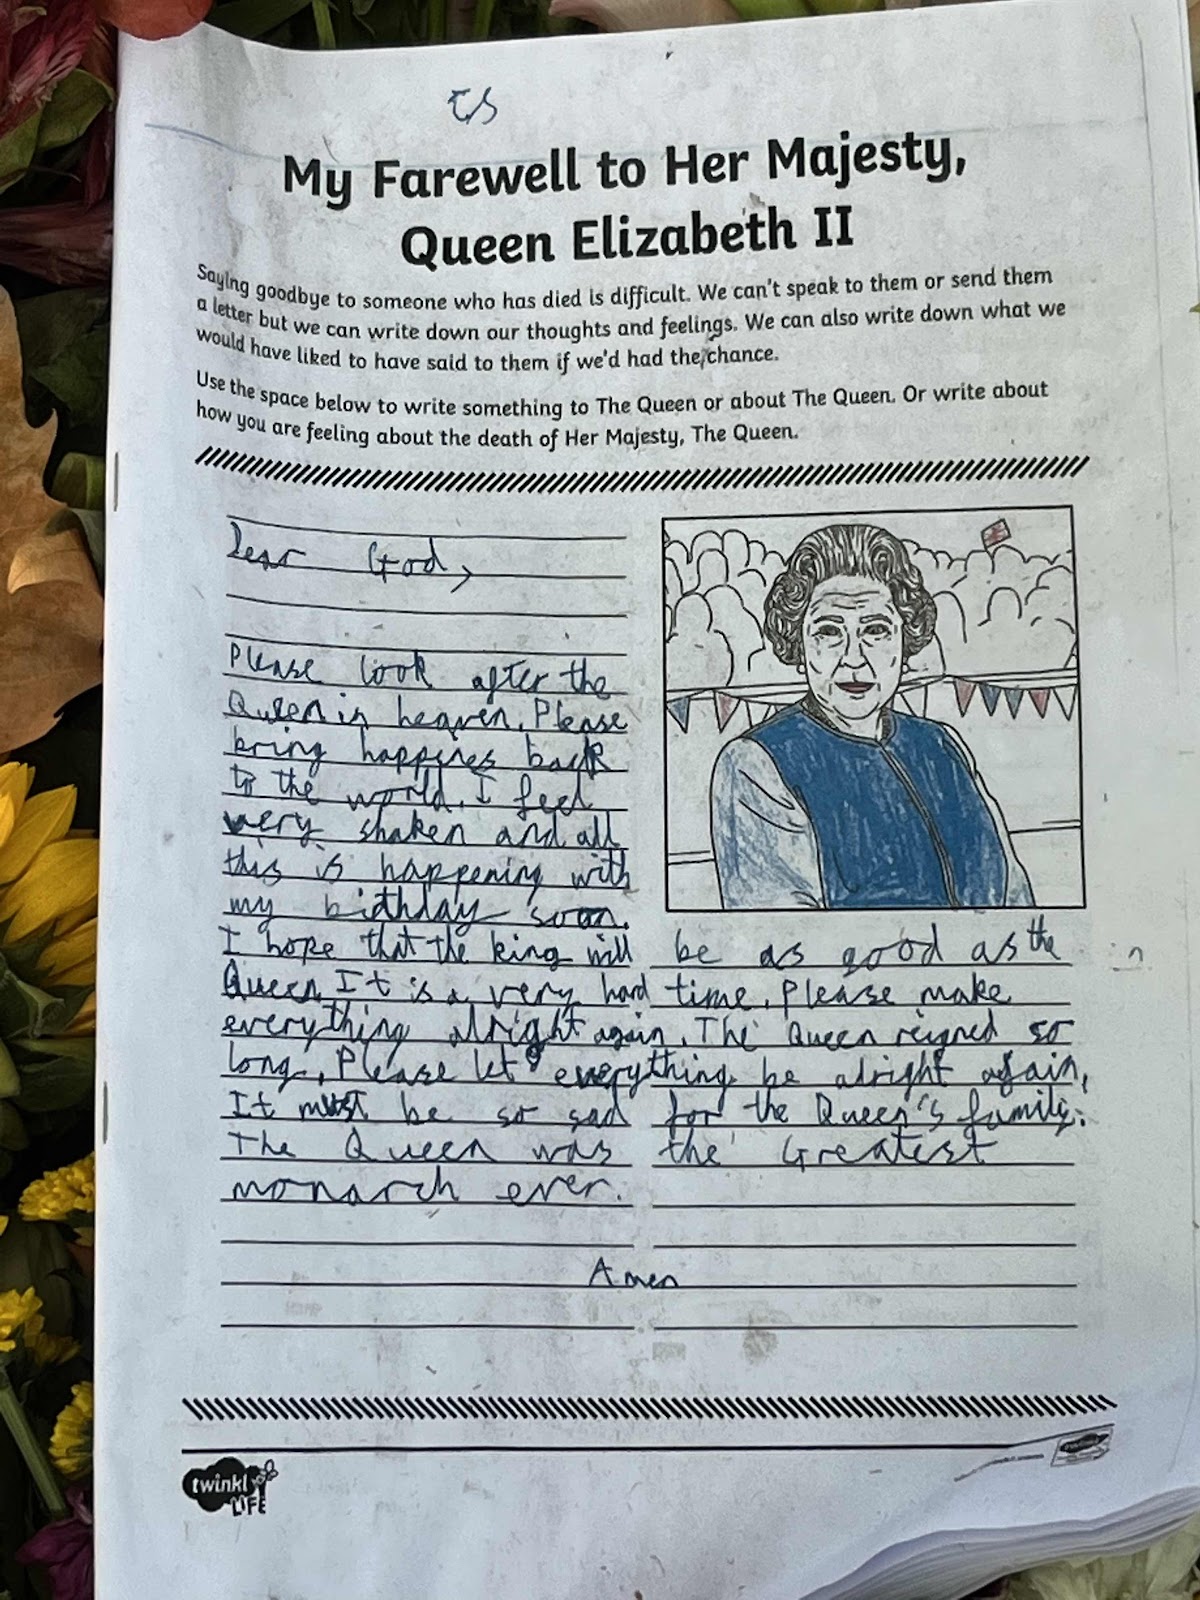 My Farewell to Her Majesty,
Queen Elizabeth II
Saying goodbye to someone who has died is difficult. We can't speak to them or send them
a letter but we can write down our thoughts and feelings. We can also write down what we
would have liked to have said to them if we'd had the chance.
Use the space below to write something to The Queen or about The Queen. Or write about
how you are feeling about the death of Her Majesty, The Queen.
Dear God,
Please look after the
Queen in heaven. Please
bring happines back
to the world. I feel
very shaken and all
this is happening with
my birthday soon.
I hope that the king will be as good as the
Queen. It is a very hard time. Please make
everything alright again. The Queen reigned so
long. Please let everything be alright again.
It must be so sad for the Queen's family.
The Queen was the Greatest
monarch ever.
Amen
twinkl
LIFE